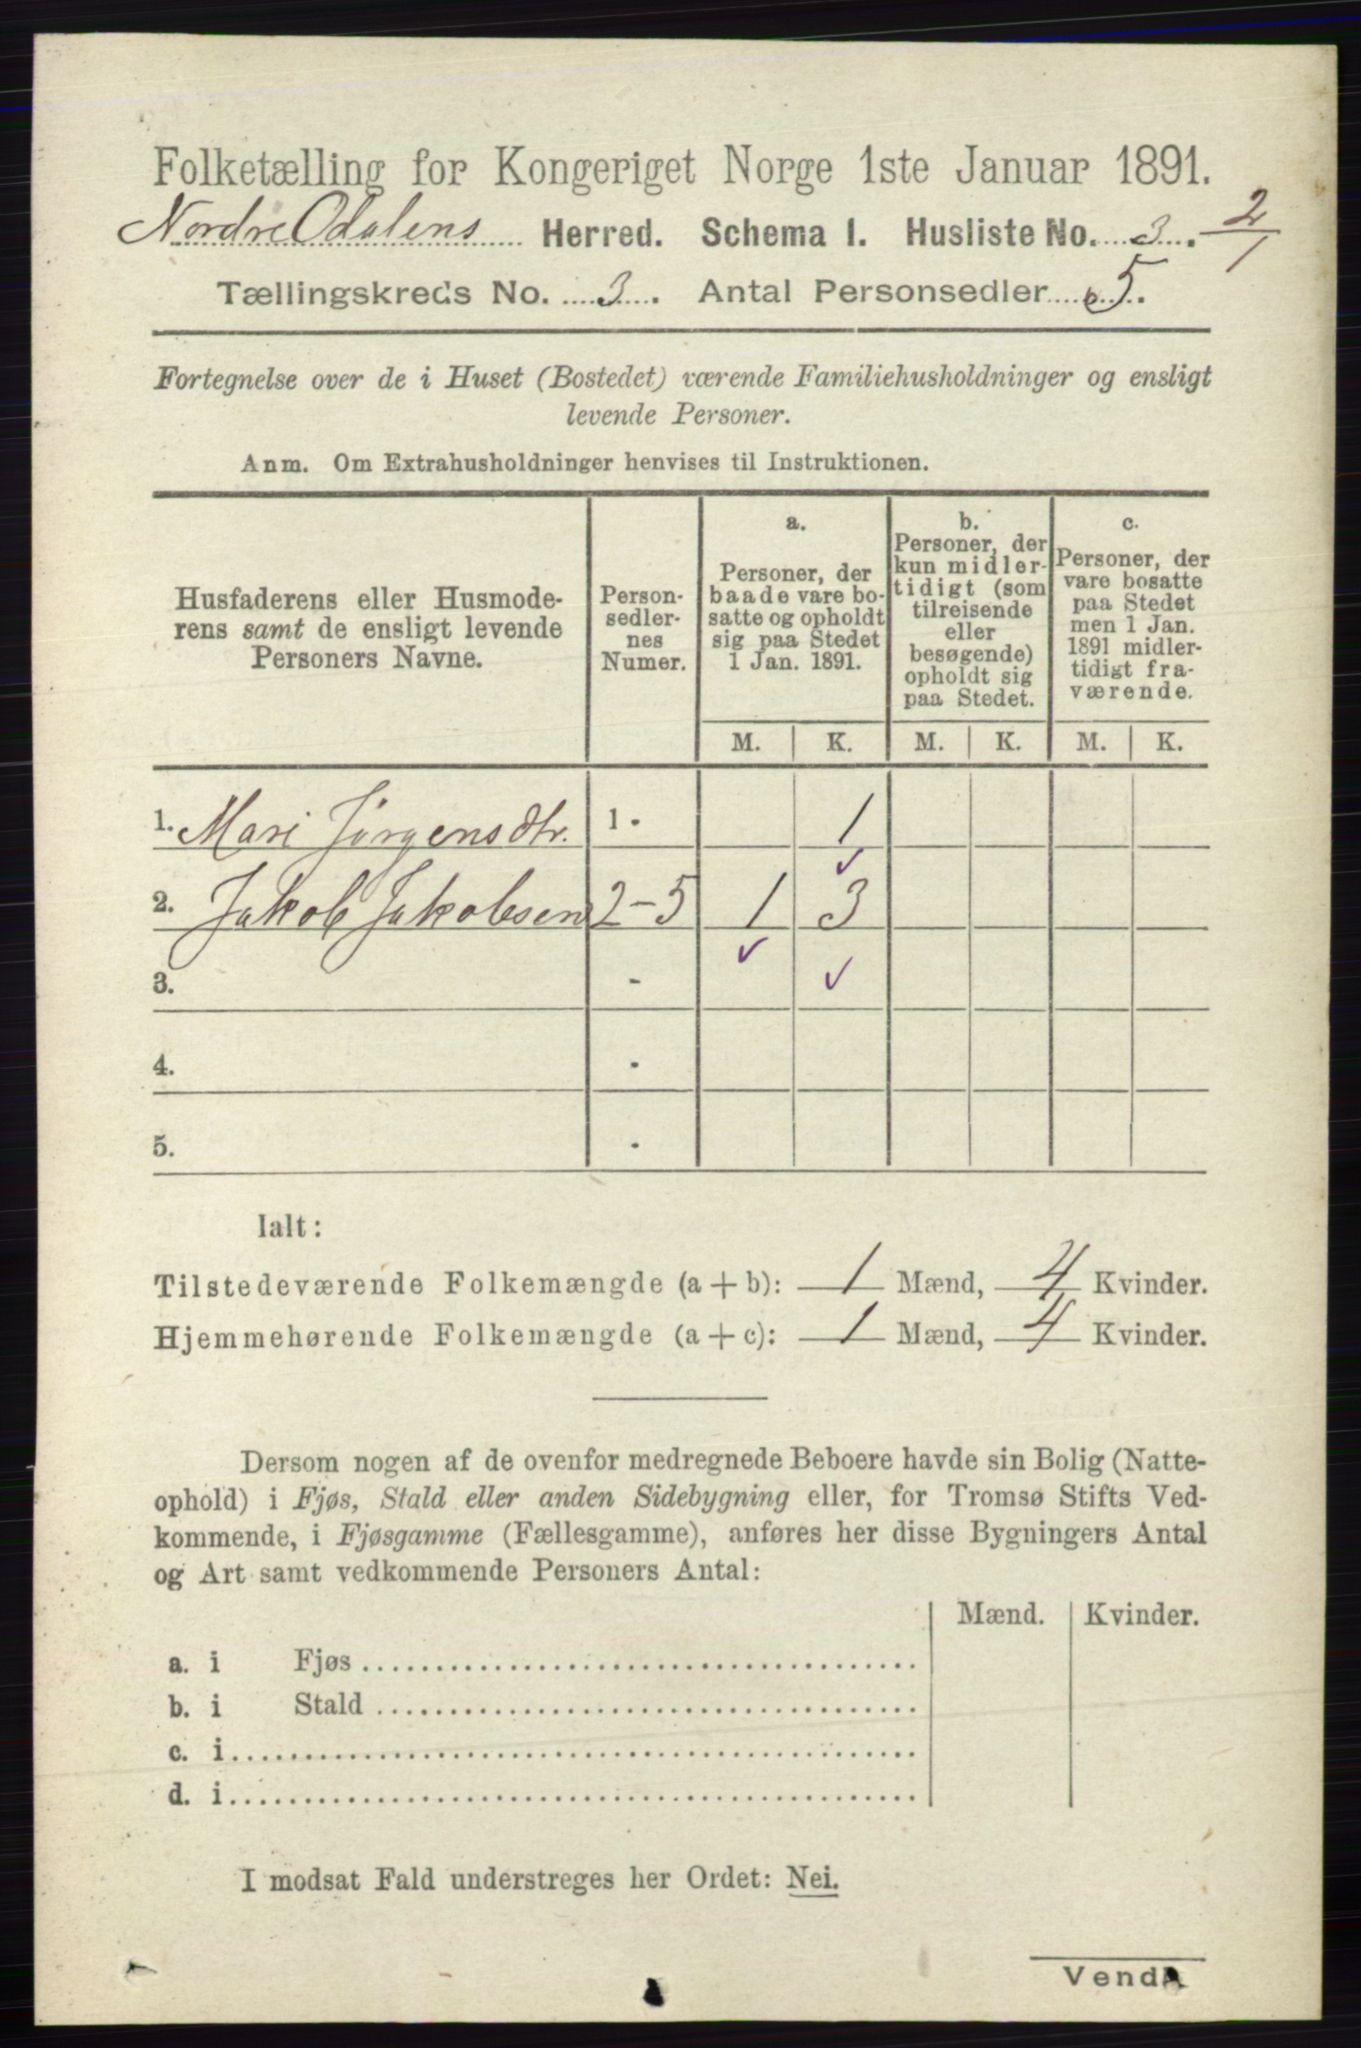 Folketælling for Kongeriget Norge 1ste Januar 1891.
Nordre Odalens Herred. Schema I. Husliste No. 3. 2/1
Tællingskreds No. 3. Antal Personsedler 5.
Fortegnelse over de i Huset (Bostedet) værende Familiehusholdninger og ensligt
levende Personer.
Anm. Om Extrahusholdninger henvises til Instruktionen.
Husfaderens eller Husmode-
rens samt de ensligt levende
Personers Navne.
Person-
sedler-
nes
Numer.
a.
Personer, der
baade vare bo-
satte og opholdt
sig paa Stedet
1 Jan. 1891.
b.
Personer, der
kun midler-
tidigt (som
tilreisende
eller
besøgende)
opholdt sig
paa Stedet.
c.
Personer, der
vare bosatte
paa Stedet
men 1 Jan.
1891 midler-
tidigt fra-
værende.
M. K. M. K. M. K.
1. Mari Jørgensdtr. 1 - 1
2. Jakob Jakobsen 2-5 1 3
3. -
4. -
5. -
Ialt:
Tilstedeværende Folkemængde (a + b): 1 Mænd, 4 Kvinder.
Hjemmehørende Folkemængde (a + c): 1 Mænd, 4 Kvinder.
Dersom nogen af de ovenfor medregnede Beboere havde sin Bolig (Natte-
ophold) i Fjøs, Stald eller anden Sidebygning eller, for Tromsø Stifts Ved-
kommende, i Fjøsgamme (Fællesgamme), anføres her disse Bygningers Antal
og Art samt vedkommende Personers Antal:
Mænd. Kvinder.
a. i Fjøs
b. i Stald
c. i
d. i
I modsat Fald understreges her Ordet: Nei.
Vend!